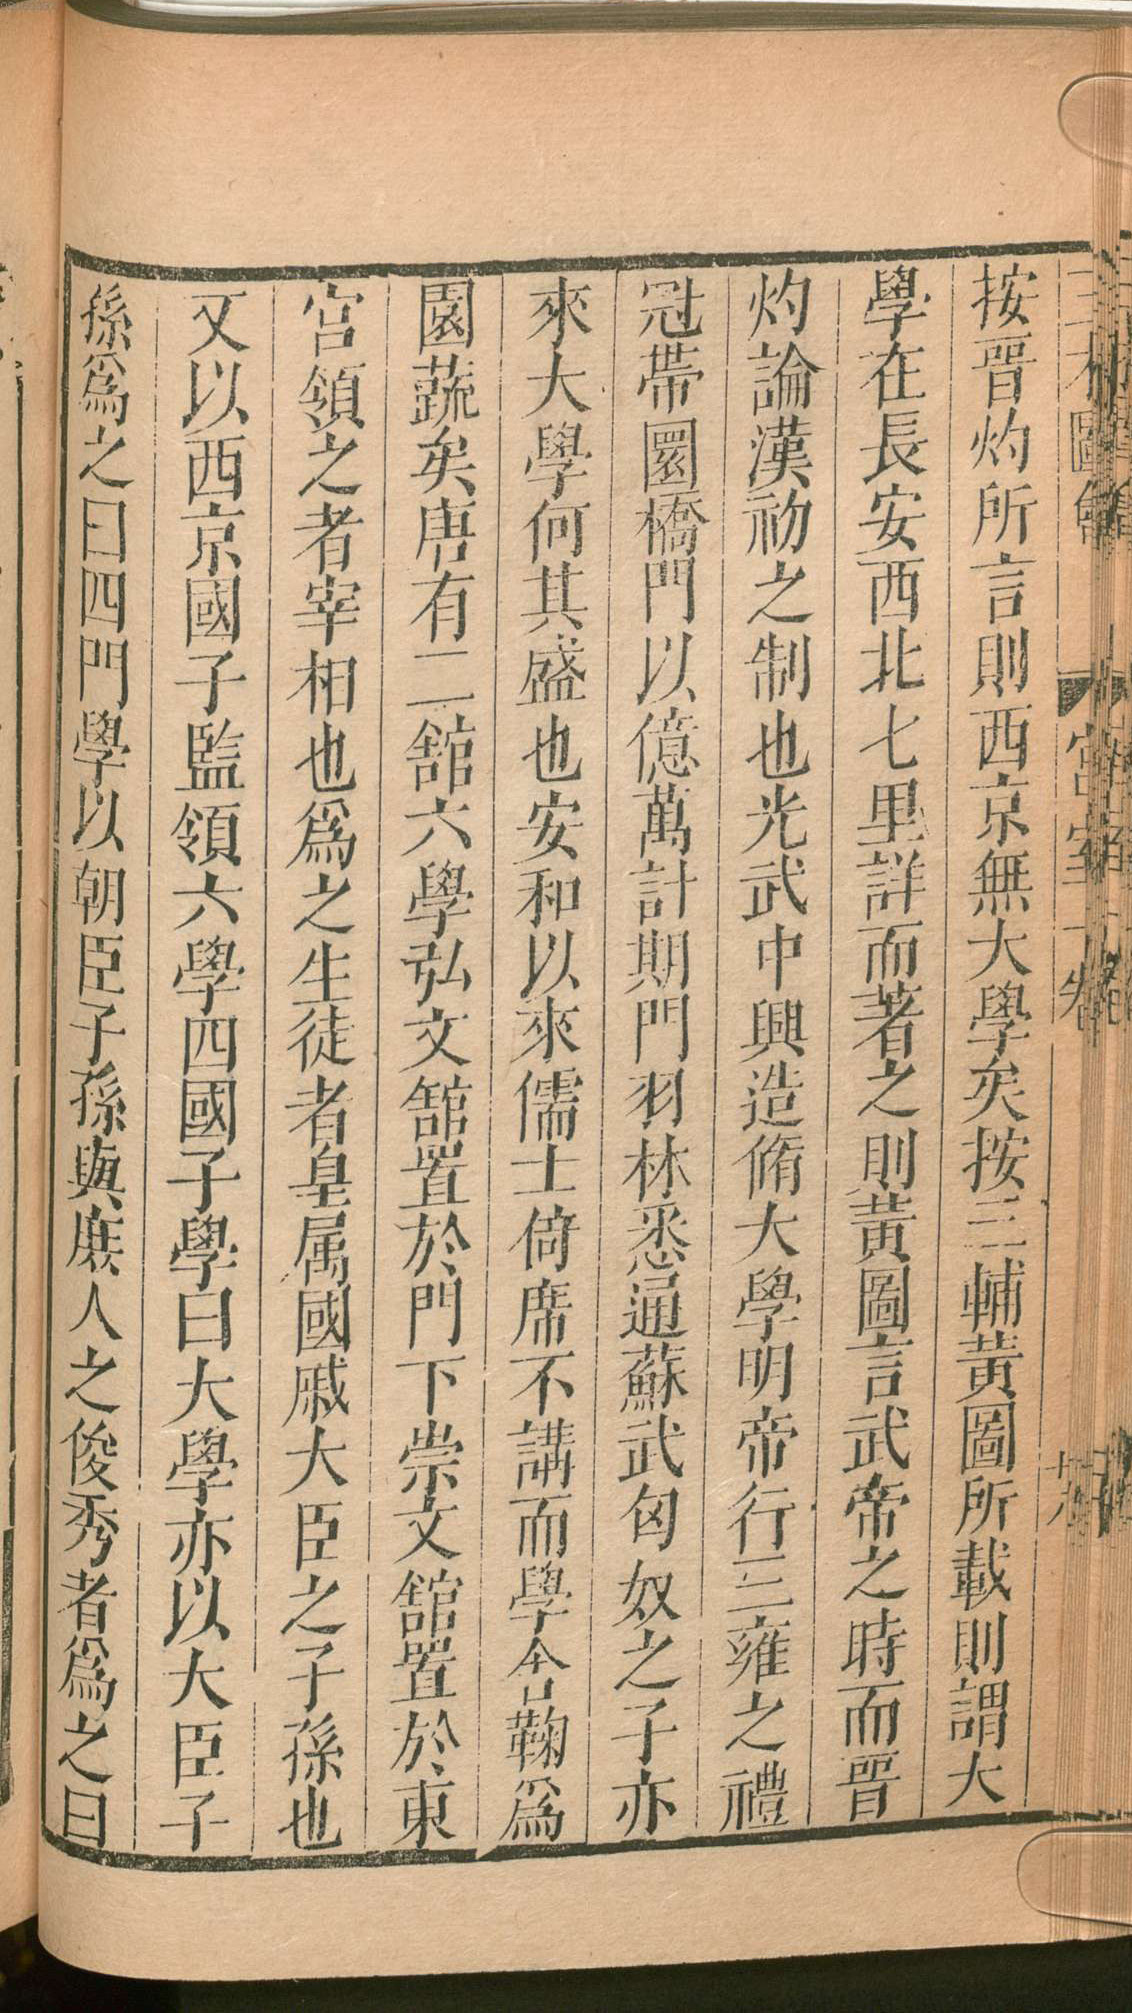 三才圖會
宮室一卷
按晋灼所言則西京無大學矣按三輔黃圖所載則謂大
學在長安西北七里詳而著之則黃圖言武帝之時而晋
灼論漢初之制也光武中興造脩大學明帝行三雍之禮
冠帶圜橋門以億萬計期門羽林悉通蘇武匈奴之子亦
來大學何其盛也安和以來儒士倚席不講而學舍鞠爲
園蔬矣唐有二舘六學弘文舘置於門下崇文舘置於東
宮領之者宰相也爲之生徒者皇属國戚大臣之子孫也
又以西京國子監領六學四國子學曰大學亦以大臣子
孫爲之曰四門學以朝臣子孫與庶人之俊秀者爲之曰